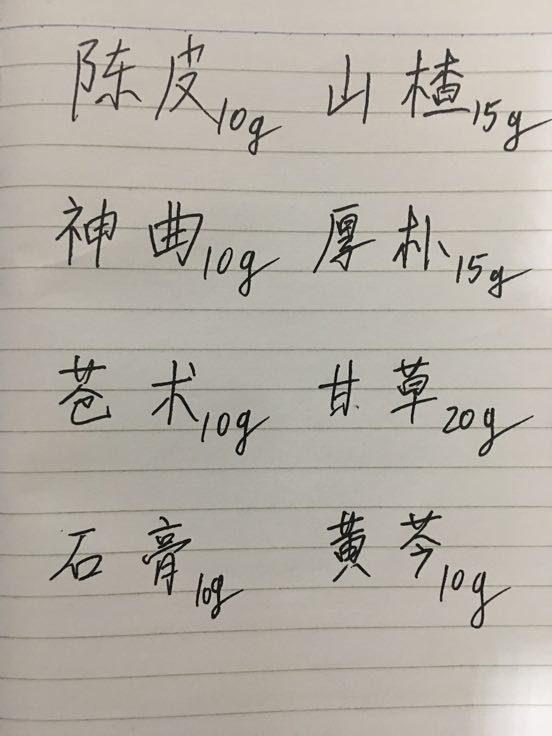 陈皮10g 山楂15g
神曲10g 厚朴15g
苍术10g 甘草20g
石膏10g 黄芩10g